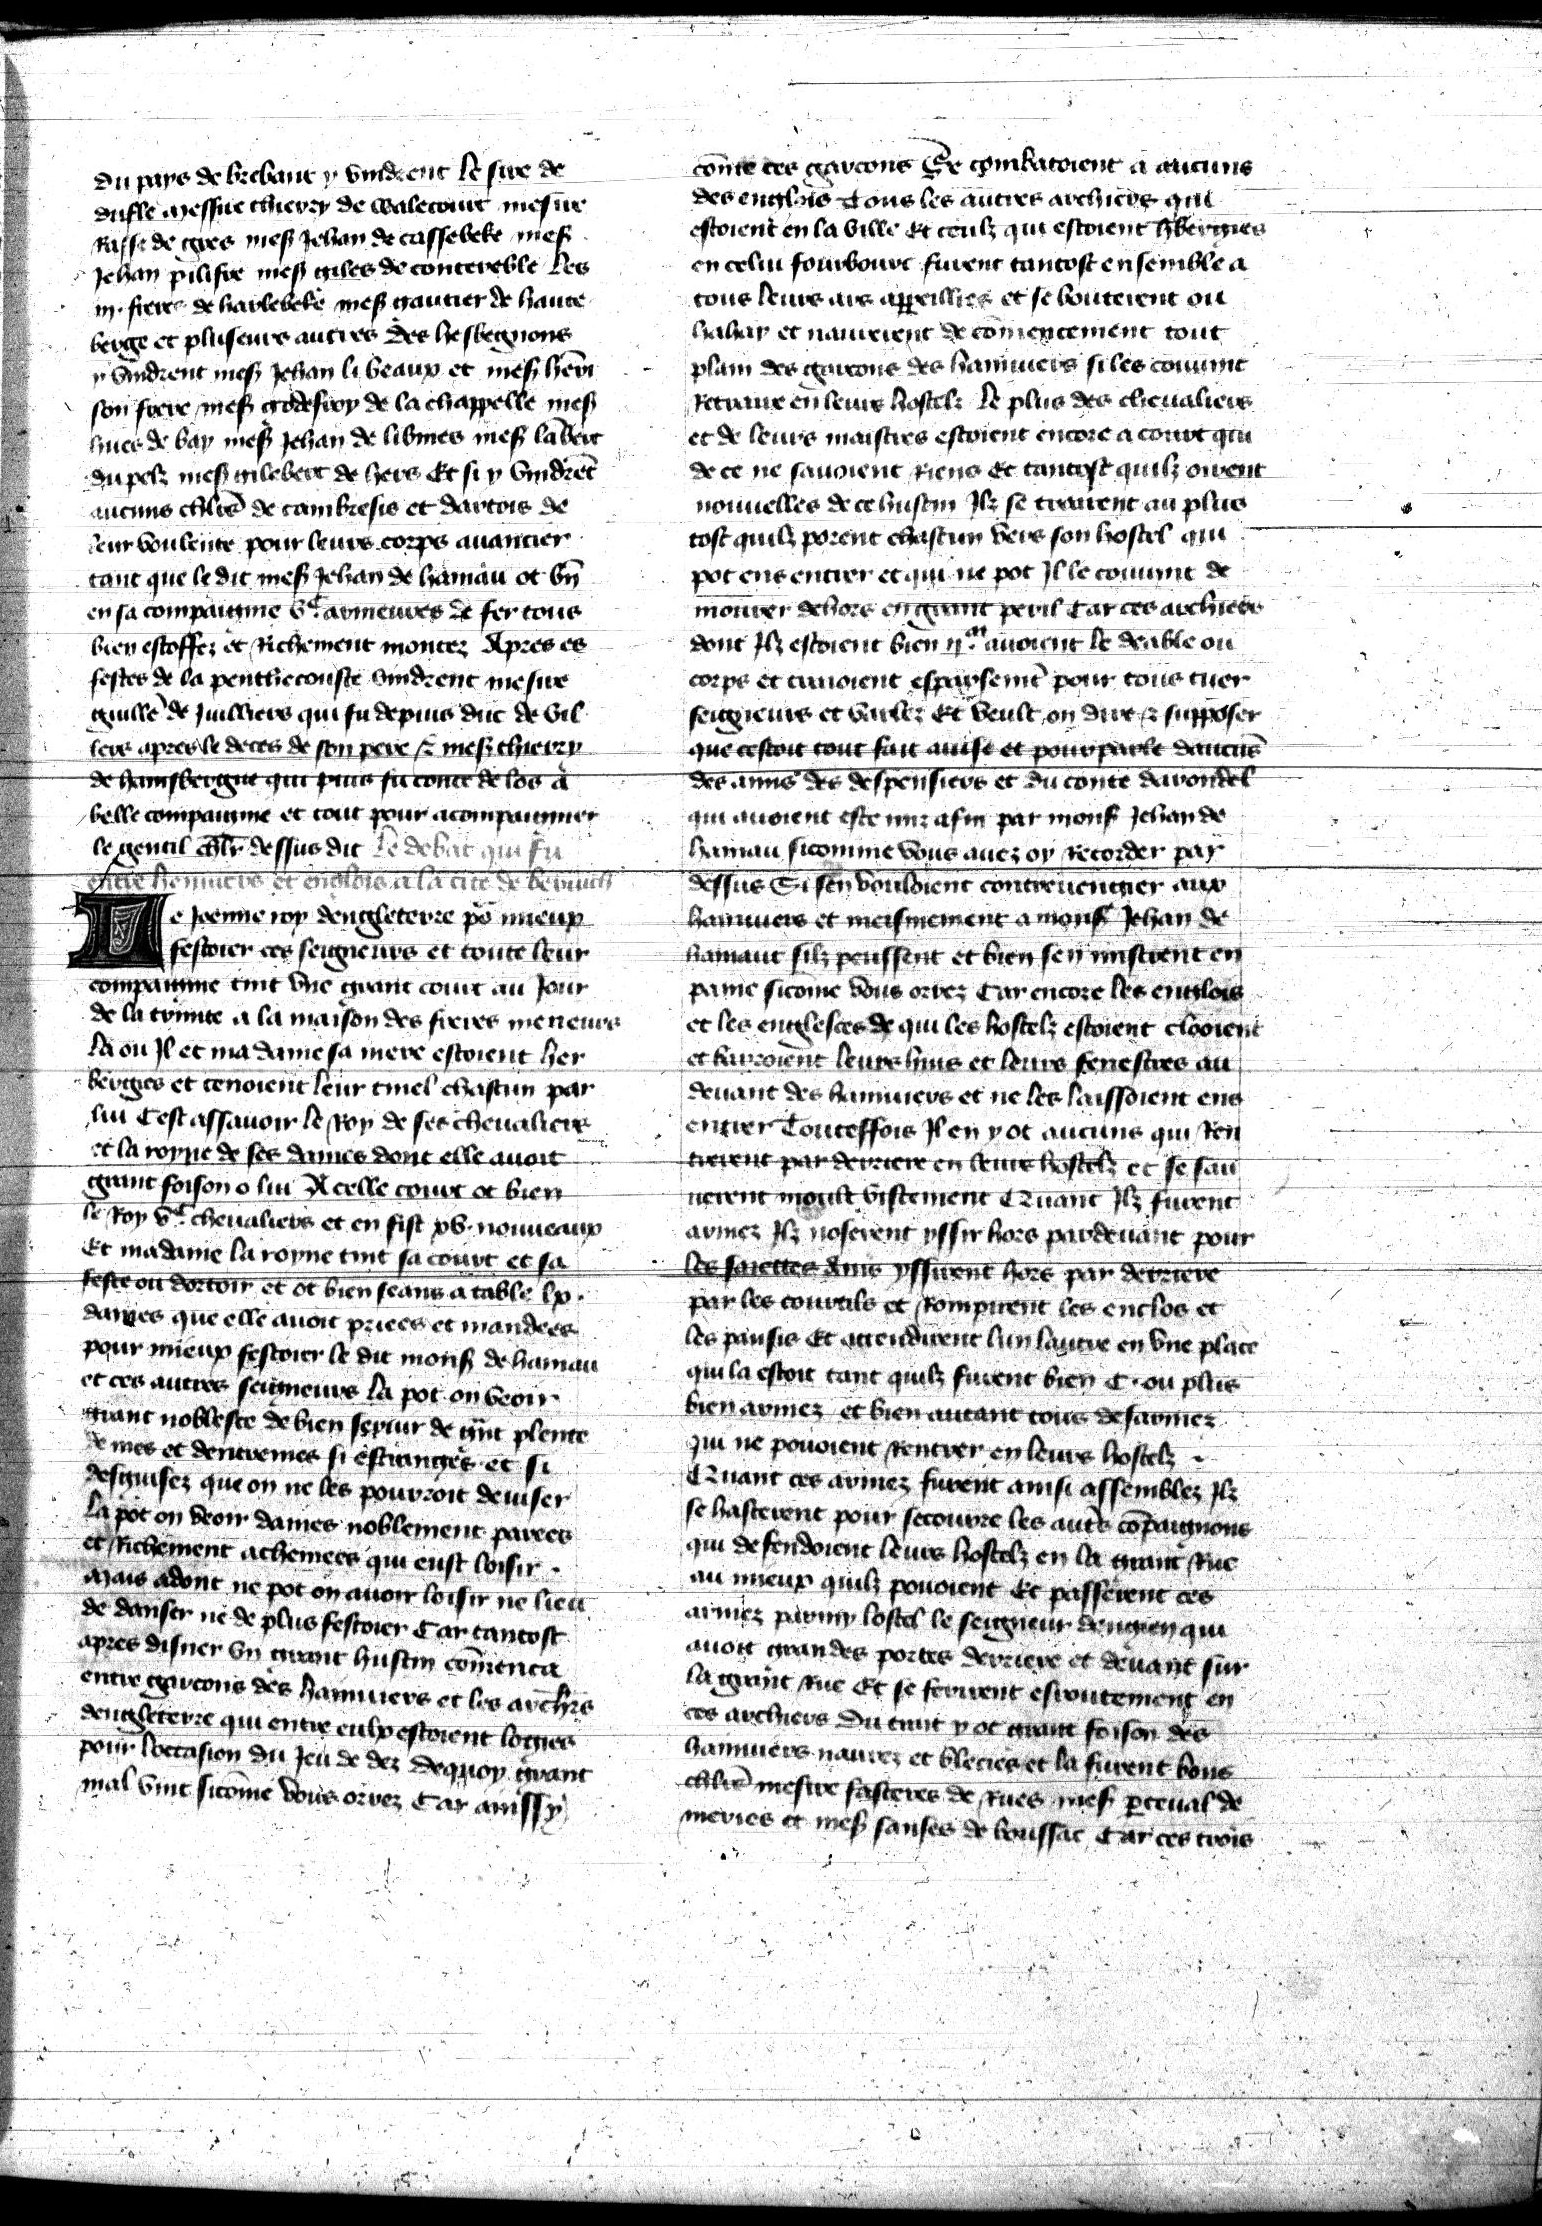 du pays de brebant y vindrent Le sire de
dufle Messire thierry de walecourt mesire
Rasse de gres mess Jehan de cassebeke mess
Jehan pilisre mess giles de contereble Les
iij. freres de harlebeke mess gautier de haute
berge et pluseurs autres Des hesbegnons
y vindrent mess Jehan li beaux et mess hēri
son frere mess godefroy de la chappelle mess
hues de bay mess Jehan de libines mess lābert
du pelz mess gilebert de hers Et si y vindrēt
aucuns chlrs de cambresis et dartois de
leur voulente pour leurs corps auancier
tant que le dit mess Jehan de hainau ot bn̄
en sa compaignie vc armeures de fer tous
bien estoffez et Richement montez Apres es
festes de la penthecouste vindrent mesire
guille de Juilliers qui fu depuis duc de Jul
lers apres le deces de son pere & mess thierry
de hainsbergue qui puis fu conte de los a
belle compaignie et tout pour acompaignier
le gentil chlr dessus dit Le debat qui fu
entre hennuiers et englois a la cite de bervich
Le Joenne roy dengleterre po mieux
festoier ces seigneurs et toute leur
compaignie tint vne grant court au Jour
de la trinite a la maison des freres meneurs
La ou Il et ma dame sa mere estoient her
berges et tenoient leur tinel chascun par
lui Cest assauoir le Roy de ses cheualiers
et la royne de ses dames dont elle auoit
grant foison o lui A celle court ot bien
le Roy vc cheualiers et en fist xv. nouueaux
Et madame la royne tint sa court et sa
feste ou dortoir et ot bien seans a table lx.
dames que elle auoit priees et mandees
pour mieux festoier le dit mons de hainau
et ces autres seigneurs La pot on veoir
grant noblesce de bien seruir de grnt plente
de mes et dentremes si estranges et si
desguisez que on ne les pourroit deuiser
La pot on veoir dames noblement parees
et Richement achemees qui eust loisir.
Mais adont ne pot on auoir loisir ne lieu
de danser ne de plus festoier Car tantost
apres disner vn grant hustin cōmenca
entre garcons des hainuiers et les archrs
dengleterre qui entre eulx estoient logies
pour loccasion du Jeu de dez dequoy grant
mal vint sicōme vous orrez Car ainssy
cōme ces garcons Se combatoient a aucuns
des englois Tous les autres archiers qui
estoient en la ville Et ceulz qui estoient hbergies
en celui fourbourc furent tantost ensemble a
tous leurs ars appeillies et se bouterent ou
hahay et naurerent de cōmencement tout
plain des garcons des hainuiers si les conuint
Retraire en leurs hostelz Le plus des cheualiers
et de leurs maistres estoient encore a court qui
de ce ne sauoient Riens Et tantost quilz oirent
nouuelles de ce hustin Ilz se trairent au plus
tost quilz porent chascun vers son hostel qui
pot ens entrer et qui ne pot Il le conuint de
mourer dehors en grant peril Car ces archiers
dont Ilz estoient bien ijm auoient le deable ou
corps et traioient esparsemt pour tous tuer
seigneurs et varlez Et veult on dire & supposer
que cestoit tout fait auise et pourparle daucūs
des amis des despensiers et du conte darondel
qui auoient este mis a fin par mons Jehan de
hainau sicomme vous auez oy Recorder par
dessus Si sen vouloient contreuengier aux
hainuiers et meismement a mons Jehan de
hainaut silz peussent et bien sen mistrent en
paine sicōme vous orrez Car encore les englois
et les englesces de qui les hostelz estoient clooient
et barroient leurs huis et leurs fenestres au
deuant des hainuiers et ne les laissoient ens
entrer Touteffois Il en y ot aucuns qui Ren
trerent par derriere en leurs hostelz et se sau
uerent moult vistement Quant Ilz furent
armez Ilz noserent yssir hors pardeuant pour
les saiettes Ains yssirent hors par derriere
par les courtils et Rompirent les enclos et
les pausis Et attendirent lun lautre en vne place
qui la estoit tant quilz furent bien C. ou plus
bien armez et bien autant tous desarmez
qui ne pouoient Rentrer en leurs hostelz.
Quant ces armez furent ainsi assemblez Ilz
se hasterent pour secourre les autrs cōpaignons
qui defendoient leurs hostelz en la grant Rue
au mieux quilz pouoient Et passerent ces
armez parmy lostel le seigneur denghien qui
auoit grandes portes derriere et deuant sur
la grant Rue Et se ferirent esroutement en
ces archiers Du trait y ot grant foison des
hainuiers naurez et blecies et la furent bons
chlrs mesire fasteres de Rues mess pceual de
meries et mess sanses de boussac Car ces trois